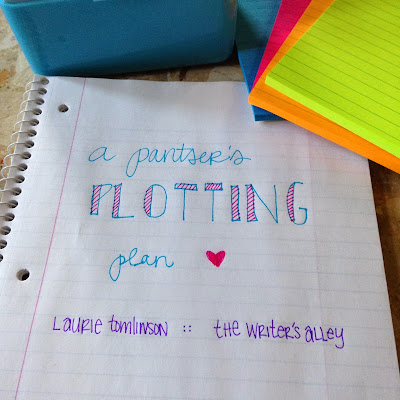 a pantser's
PLOTTING
plan
Laurie tomlinson :: the writer's alley